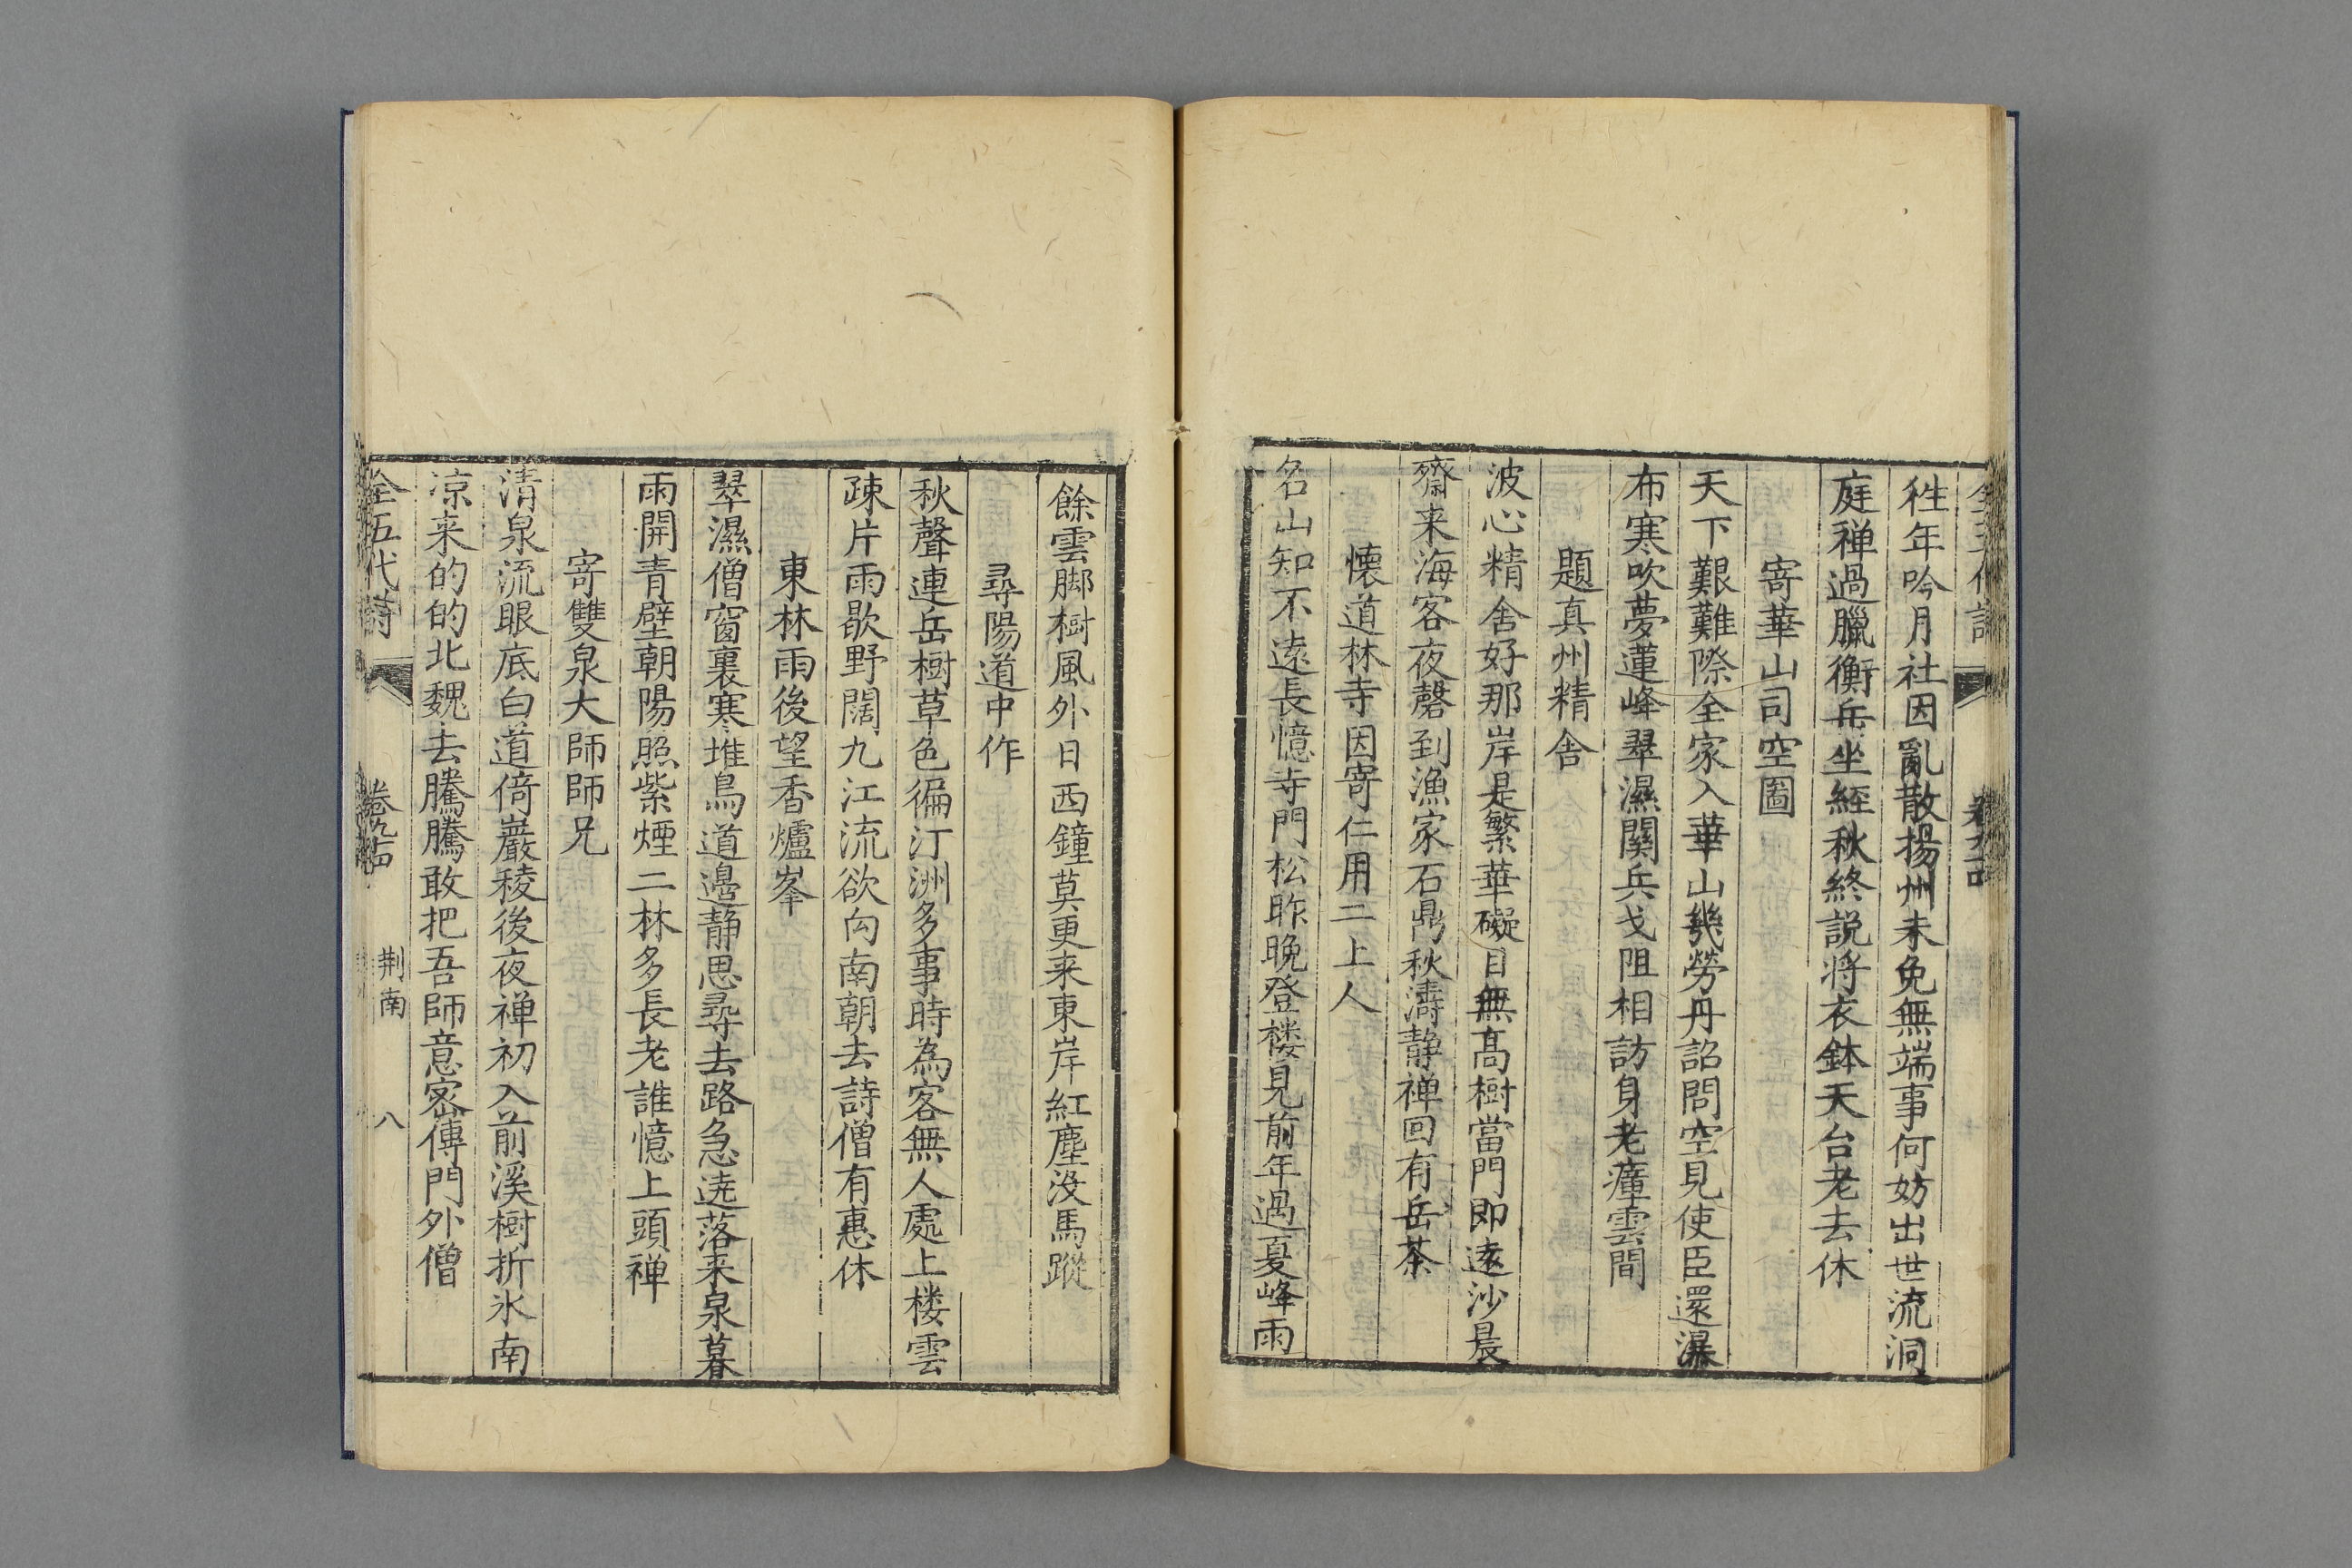 全五代詩 卷九十四
徃年吟月社因亂散揚州未免無端事何妨出世流洞
庭禅過臘衡岳坐經秋終説將衣鉢天台老去休
寄華山司空圖
天下艱難際全家入華山幾勞丹詔問空見使臣還瀑
布寒吹夢蓮峰翠濕關兵戈阻相訪身老瘴雲間
題真州精舍
波心精舍好那岸是繁華礙目無髙樹當門即逺沙晨
齋来海客夜磬到漁家石鼎秋濤静禅回有岳茶
懐道林寺因寄仁用二上人
名山知不逺長憶寺門松昨晚登楼見前年過夏峰雨
餘雲脚樹風外日西鐘莫更来東岸紅塵没馬蹤
尋陽道中作
秋聲連岳樹草色徧汀洲多事時為客無人處上楼雲
疎片雨歇野闊九江流欲向南朝去詩僧有惠休
東林雨後望香爐峯
翠濕僧窗裏寒堆鳥道邉静思尋去路急遶落来泉暮
雨開青壁朝陽照紫煙二林多長老誰憶上頭禅
寄雙泉大師師兄
清泉流眼底白道倚巖稜後夜禅初入前溪樹折氷南
凉来的的北魏去騰騰敢把吾師意密傳門外僧
全五代詩 卷九十四 荆南 八